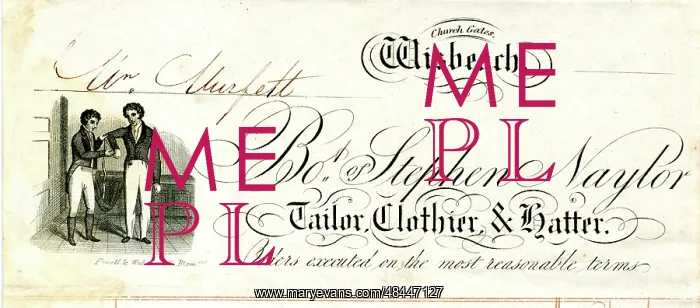 Church Gates.
Wisbech
Mr. Murfett
Bot. of Stephen Naylor
Tailor, Clothier, & Hatter.
Orders executed on the most reasonable terms
ME
PL
ME
PL
www.maryevans.com/48447127